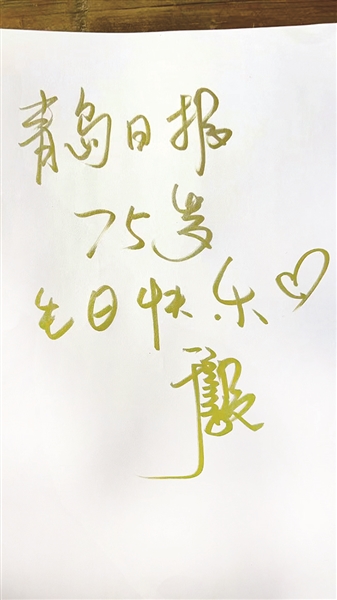 青岛日报
75岁
生日快乐♡